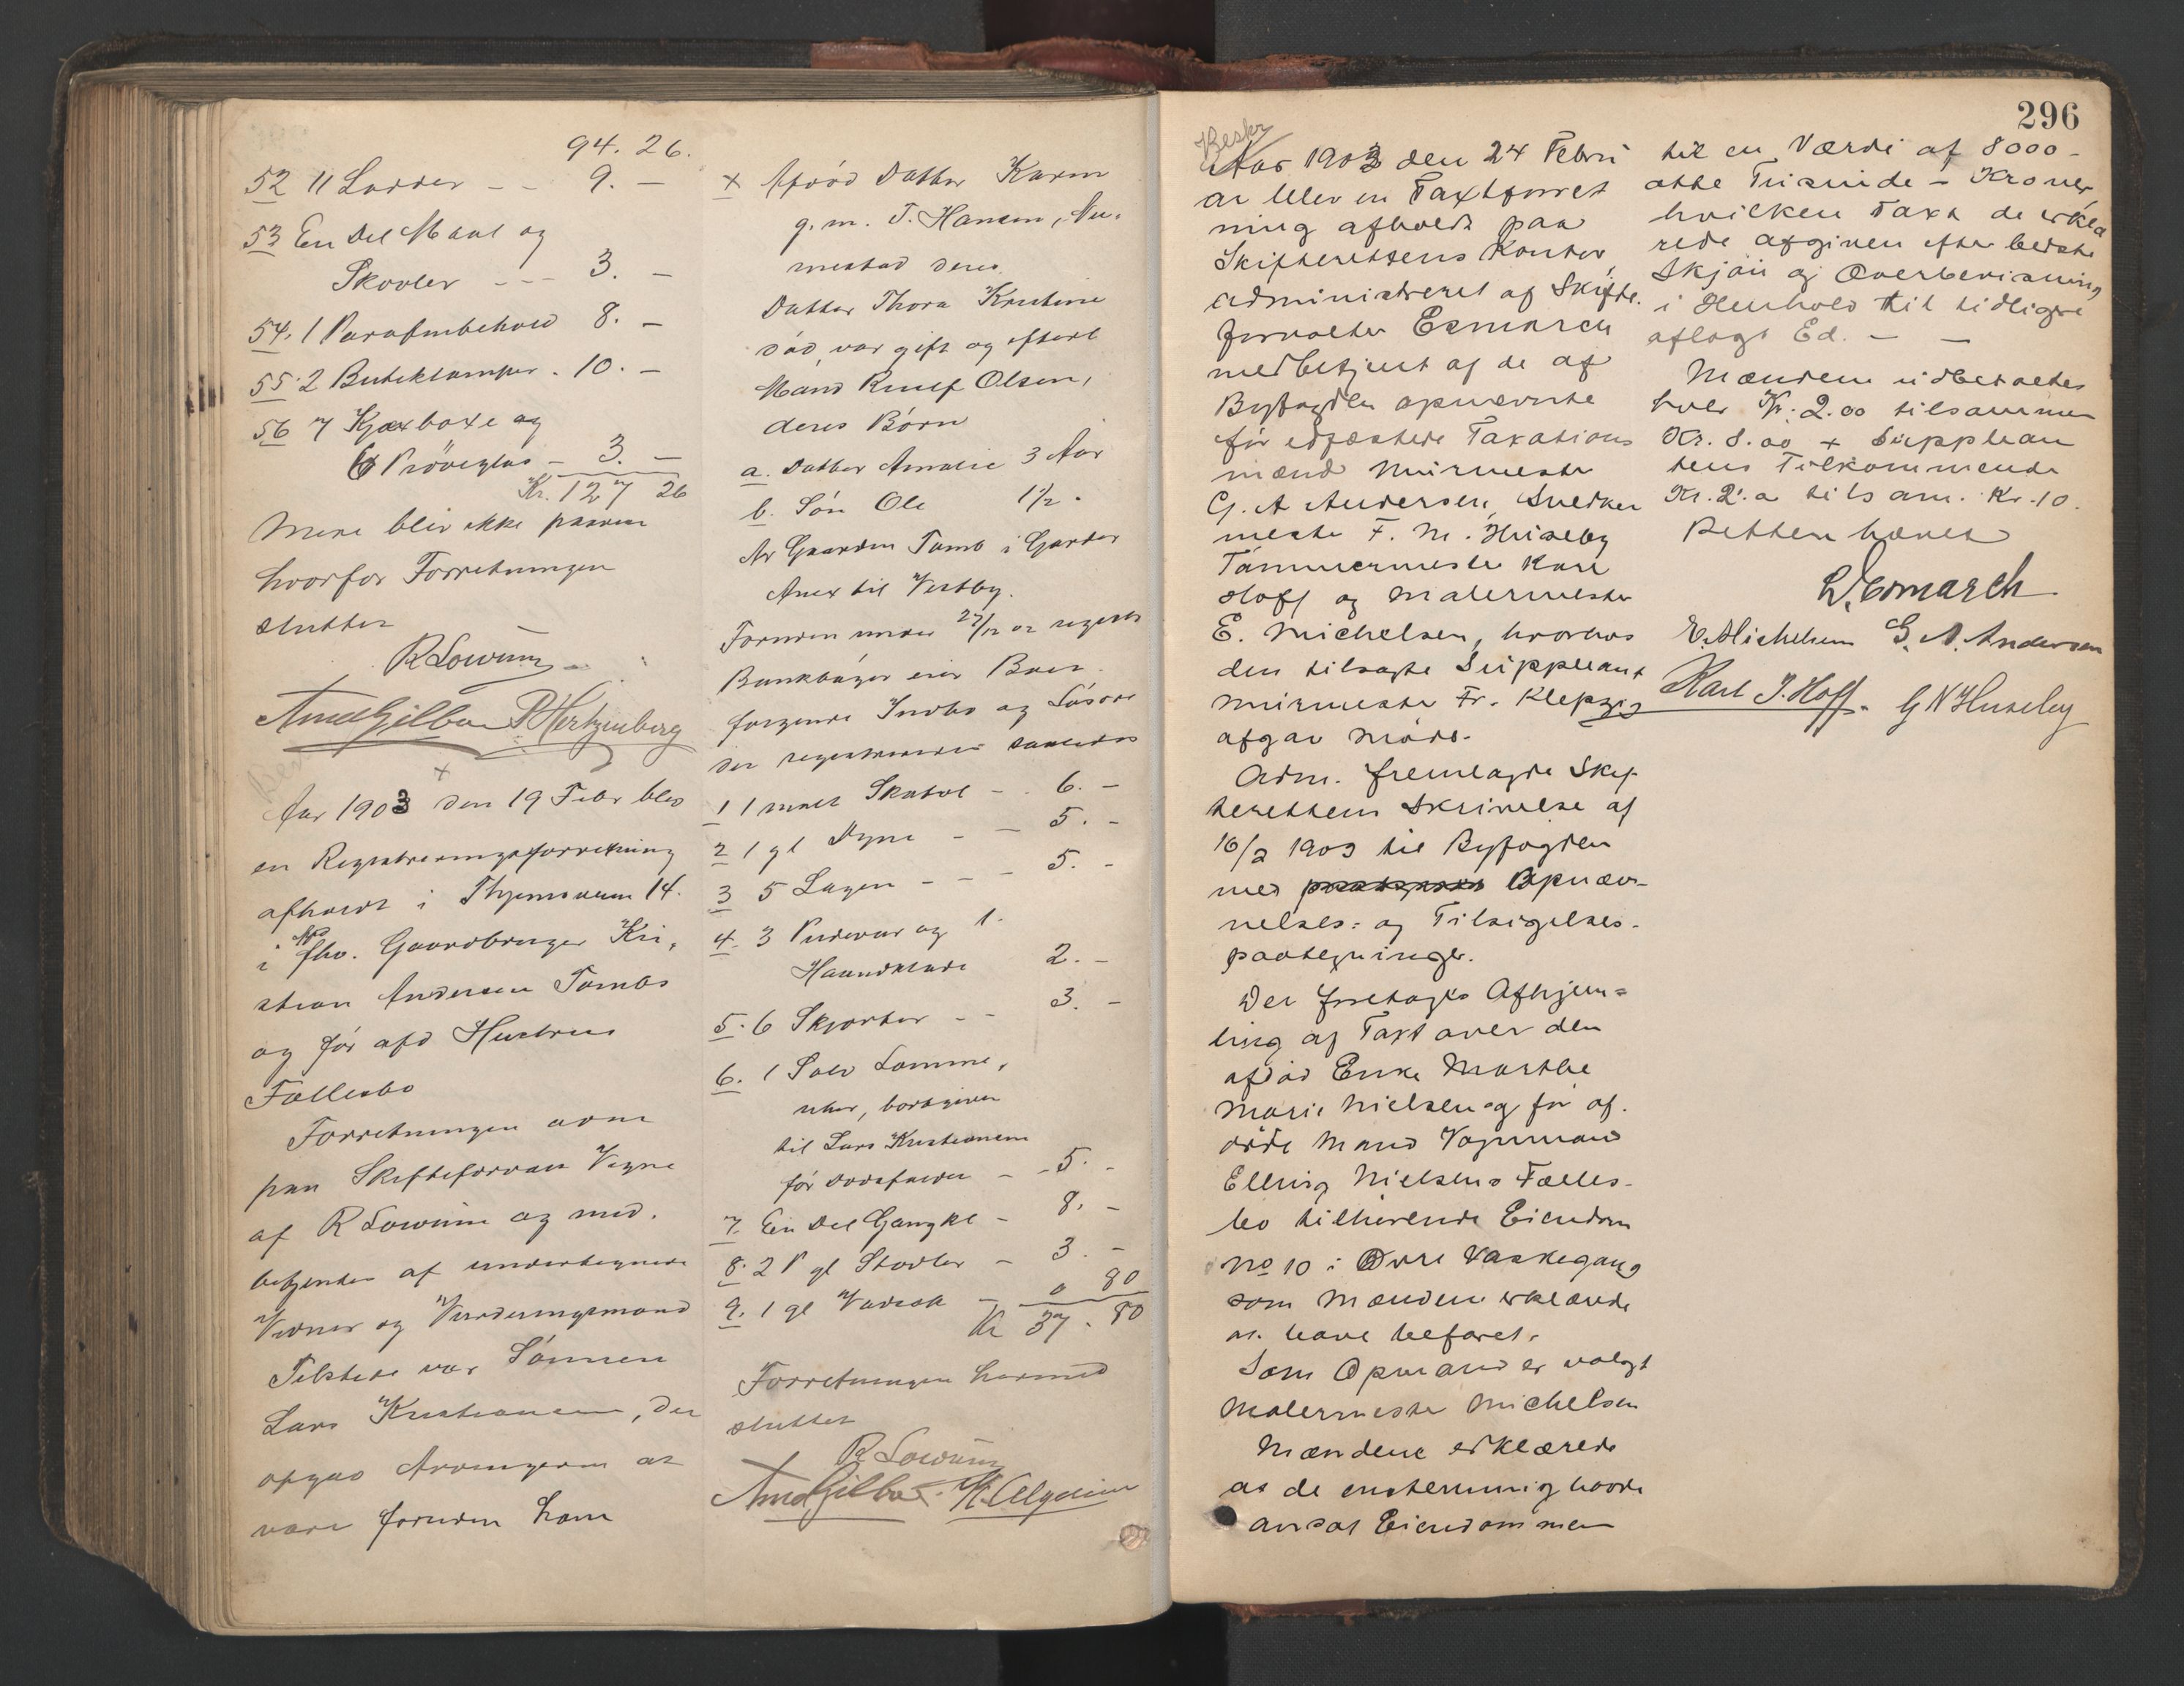 94. 26.
52 11 Lodder - - 9. -
53 En Del Maal og
Skovler - - - 3. -
54. 1 Parafinbehold 8. -
55. 2 Butiklamper. 10. -
56 7 Kjæxboxe og
6 Prøveglas - 3. -
Kr. 127 26
Mere blev ikke paavist
hvorfor Forretningen
sluttet
R Lowum
P Hertzenberg
+
Aar 1903 den 19 Febr blev
en Registreringsforretning
afholdt i 14.
i fhv. Gaardbruger Kri-
stian Andersen Tombs
og før afd Hustrus
Fællesbo
Forretningen adm
paa Skifteforvalt Vegne
af R Lowum og med-
betjentes af undertegnede
Vidner og Vurderingsmænd
Tilstede var Sønnen
Lars Kristiansen, der
opgav Arvingerne at
være foruden ham
+ Afdød Datter Karen
g. m. T. Hansen,
deres
Datter Thora Kristine
død, var gift og efterl
Mand Olsen,
deres Børn
a. Datter Amalie 3 Aar
b. Søn Ole 1½ "
Av Gaarden Tomb i Garder
Anex til Vestby.
Foruden under 27/12 02 registr
Bankbøger eier Boet
følgende Indbo og Løsøre
der registreredes saaledes
1 1 malt Skatol - - 6. -
2 1 gl Dyne - - 5. -
3 5 Lagen - - - 5. -
4. 3 Pudevar og 1.
Haandklæde 2. -
5. 6 Skjorter - - 3. -
6. 1 Sølv Lomme-
uhr, bortgiven
til Lars Kristiansen
før Dødsfaldet - - 5. -
7. En Del Gangkl - 8. -
8. 2 P gl Støvler - 3. -
9. 1 gl Vadsæk - 0 80
Kr 37. 80
Forretningen hermed
sluttet
R Lowum
296
Beskr
Aar 1903 den 24 Febru
ar blev en Taxtforret
ning afholdt paa
Skifterettens Kontor
administreret af Skifte-
forvalter Esmarch
medbetjent af de af
Byfogden opnævnte
før edfæstede Taxations
mænd Murmester
G. A Andersen, Snedker
mester F. N. Huseby
Tømmermester Karl
Hoff og Malermester
E. Michelsen, hvorhos
den tilsagte Suppleant
Murmester Fr. Klepzig
afgav Møde.
Adm. fremlagde Skif-
terettens Skrivelse af
16/2 1903 til Byfogden
med Opnæv-
nelses- og Tilsigelses-
paategninger.
Der foretoges Afhjem-
ling af Taxt over den
afdød Enke Marthe
Marie Nielsen og før af-
døde Mand Vognmand
Elling Nielsens Fælles-
bo tilhørende Eiendom
No 10 i Øvre Vaskegang
som Mændene erklærede
at have befaret.
Som Opmand er valgt
Malermester Michelsen
Mændene erklærede
at de enstemmig havde
ansat Eiendommen
til en Værdi af 8000 -
otte Tusinde - Kroner,
hvilken Taxt de erklæ
rede afgiven efter bedste
Skjøn og Overbevisning
i Henhold til tidligere
aflagt Ed. - -
Mændene udbetaltes
hver Kr. 2.00 tilsammen
Kr. 8.00 + Supplean
tens Tilkommende
Kr. 2. a tilsam. Kr. 10.
Retten hævet
Esmarch
E. Michelsen G. A. Andersen
Karl J. Hoff. G N Huseby